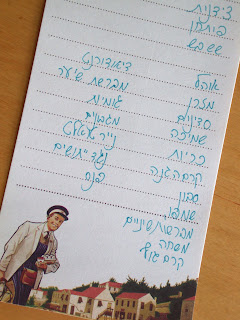 צידנית
שש בש
אוהל
מזרן
סדינים
שמיכה
כריות
קרם הגנה
סבון
שמפו
מברשות שיניים
משחה
קרם גוף
דיאודורנט
מברשת שיער
גומיות
מגבונים
נייר טואלט
נגד יתושים
פנס